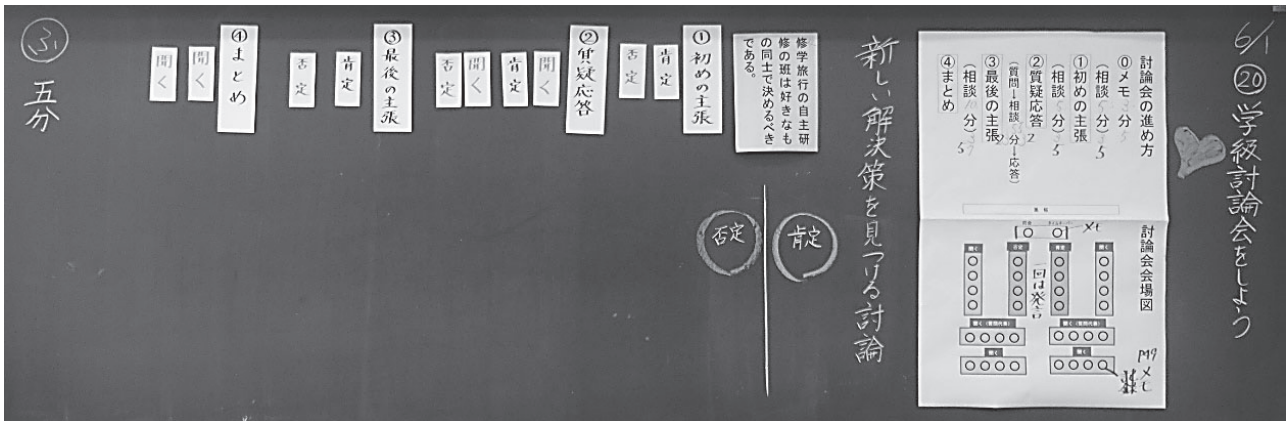 6/1
⑳ 学級討論会をしよう
討論会の進め方
⓪メモ 分
(相談5分)5
①初めの主張
(相談5分)5
②質疑応答2
(質問→相談 分→応答)
③最後の主張2
(相談 分)5
④まとめ
討論会会場図
メモ
聞く
肯定
否定
聞く
一回は発言
聞く(質問代表)
聞く(質問代表)
聞く
聞く
P49
メモ
新しい解決策を見つける討論
修学旅行の自主研
修の班は好きなも
の同士で決めるべき
である。
肯定
否定
①初めの主張
肯定
否定
②質疑応答
聞く
肯定
聞く
否定
③最後の主張
肯定
否定
④まとめ
聞く
聞く
ふ
五分